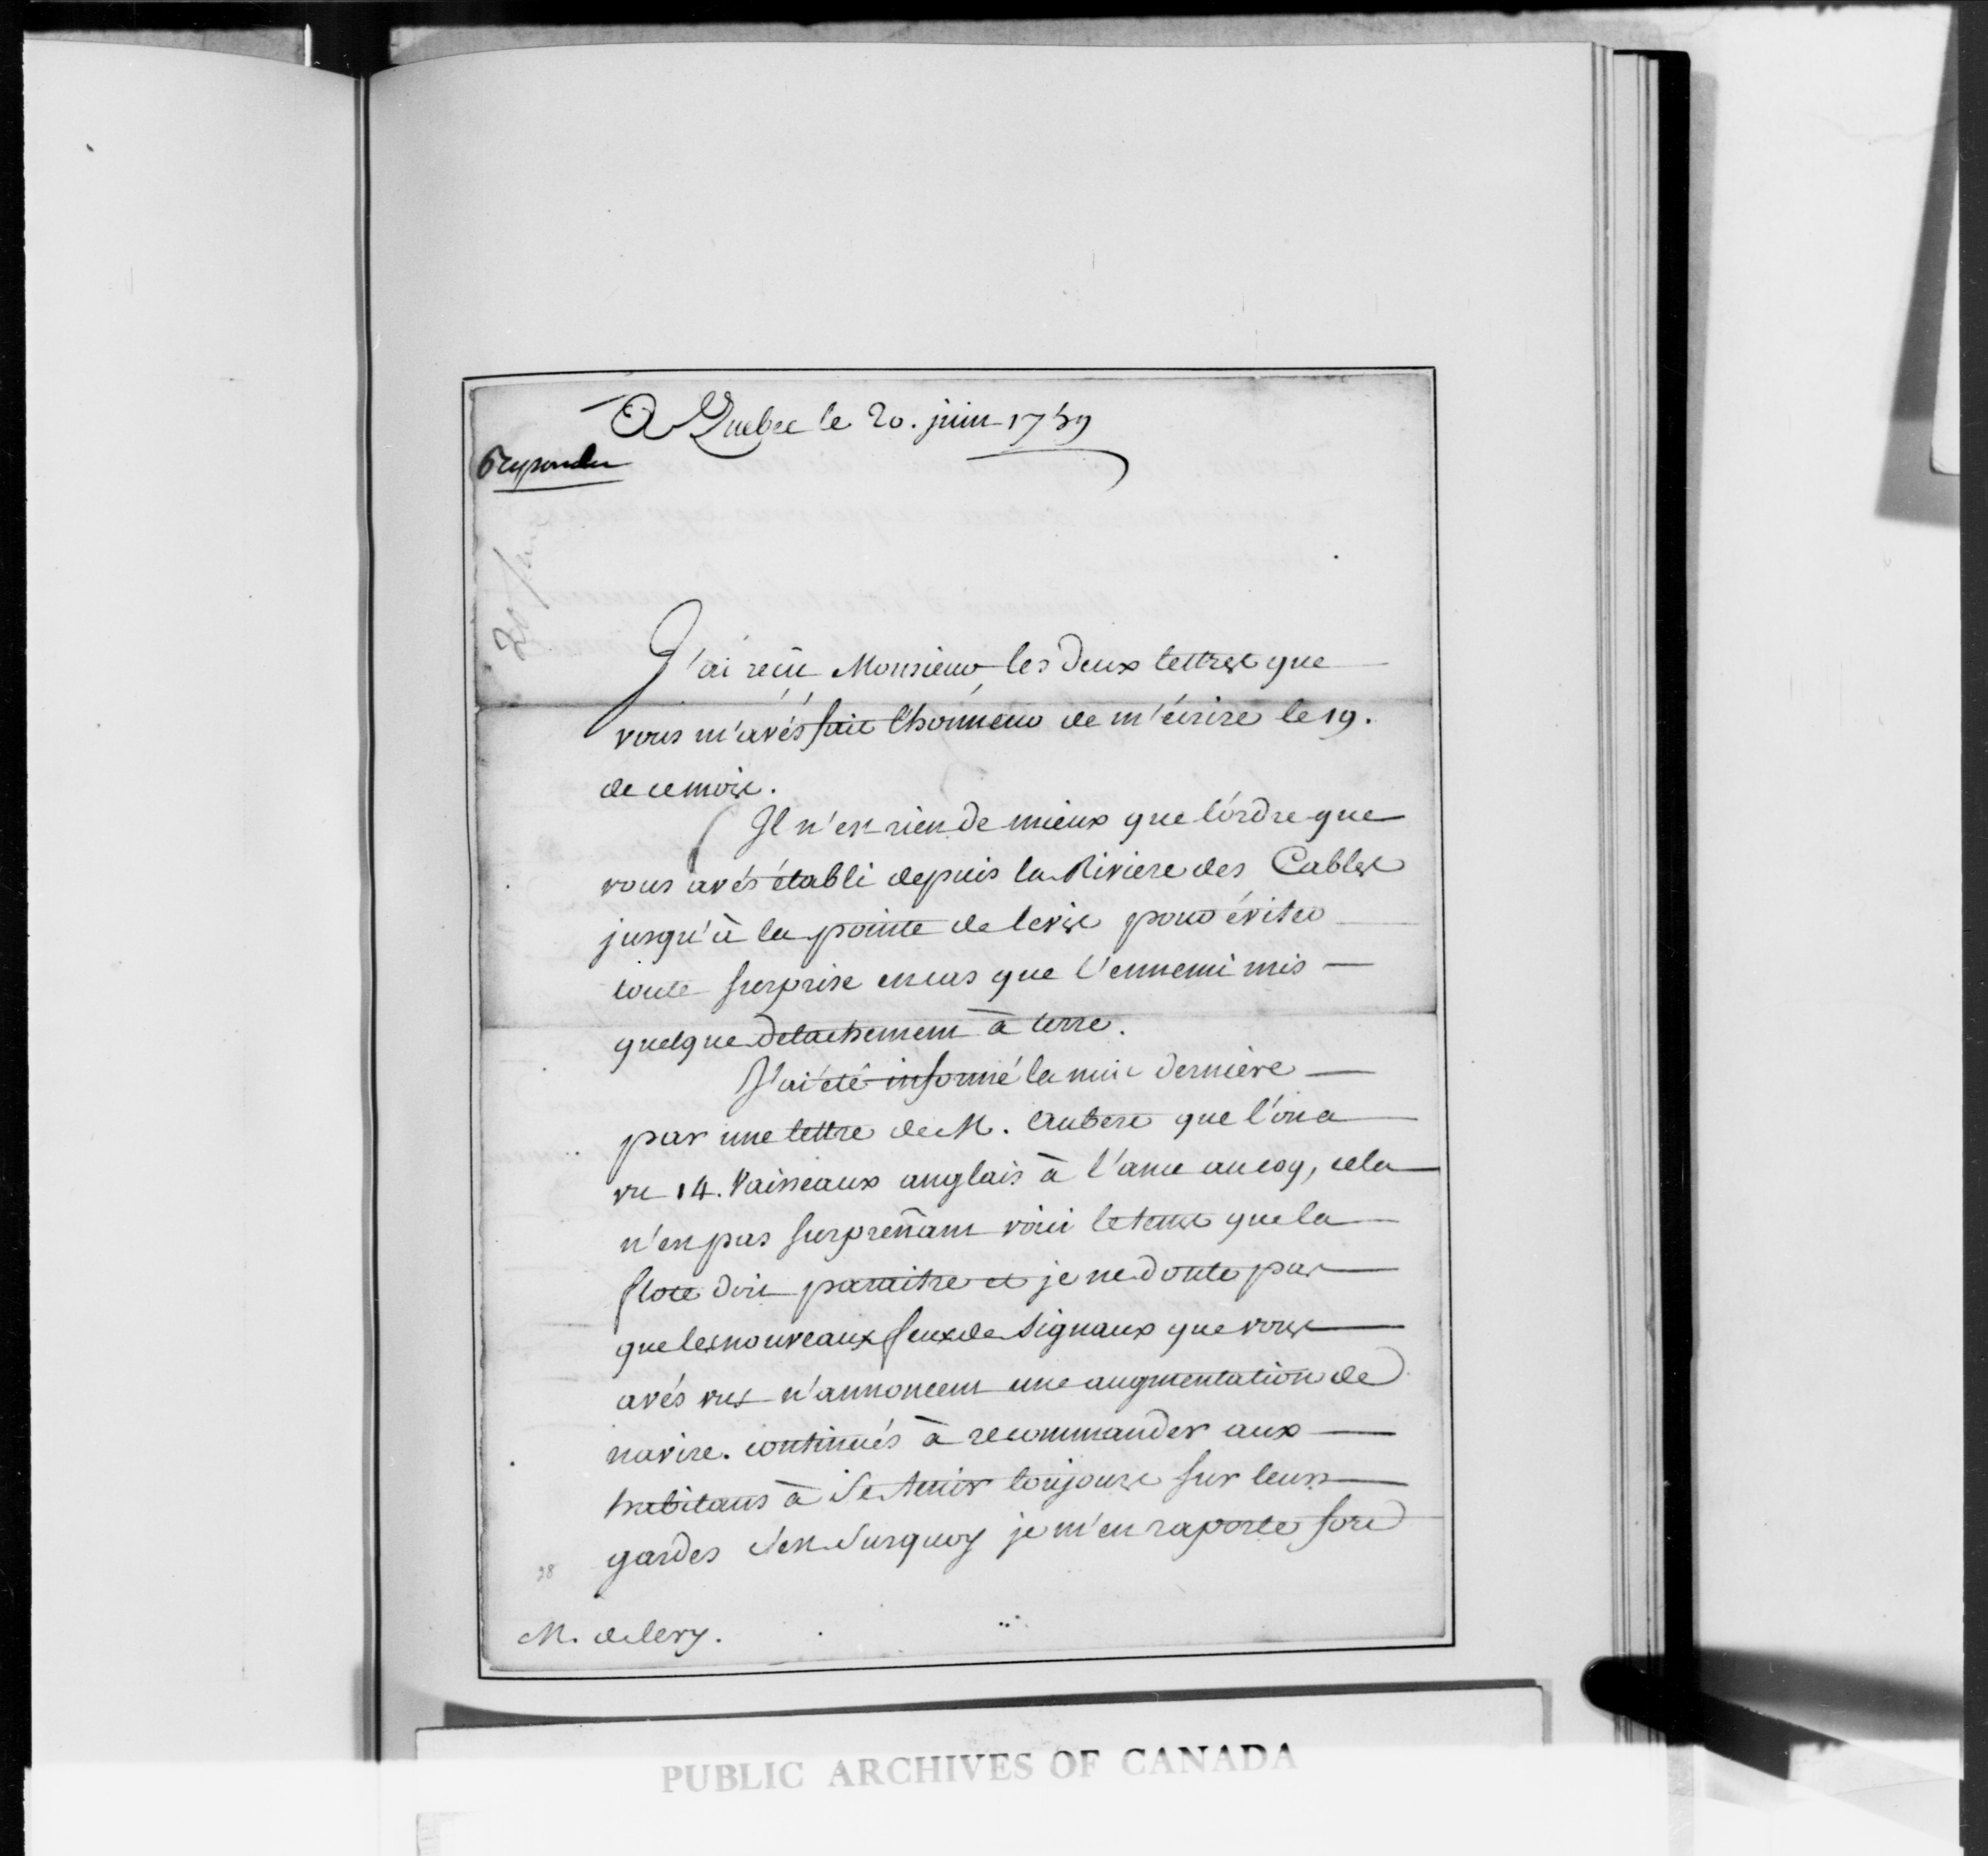 A Quebec le 20. juin 1759
Repondu
20 juin
J'ai reçû Monsieur, les deux lettres que
vous m'avés fait l'honneur de m'écrire le 19.
de ce mois.
Il n'est rien de mieux que l'ordre que
vous avés établi depuis la Riviere des Cables
jusqu'à la pointe de levis pour éviter
toute surprise en cas que l'ennemi mis
quelque detachement à terre.
J'ai été informé la nuit derniere
par une lettre de M. Aubert que l'on a
vu 14. Vaisseaux anglais à l'ance au coq, cela
n'est pas surprenant voici le tems que la
flote doit paraitre et je ne doute pas
que les nouveaux feux de signaux que vous
avés vus n'annoncent une augmentation de
navire. continués à recommander aux
habitans à se tenir toujours sur leurs
gardes c'est surquoy je m'en raporte fort
28
M. de lery.
PUBLIC ARCHIVES OF CANADA